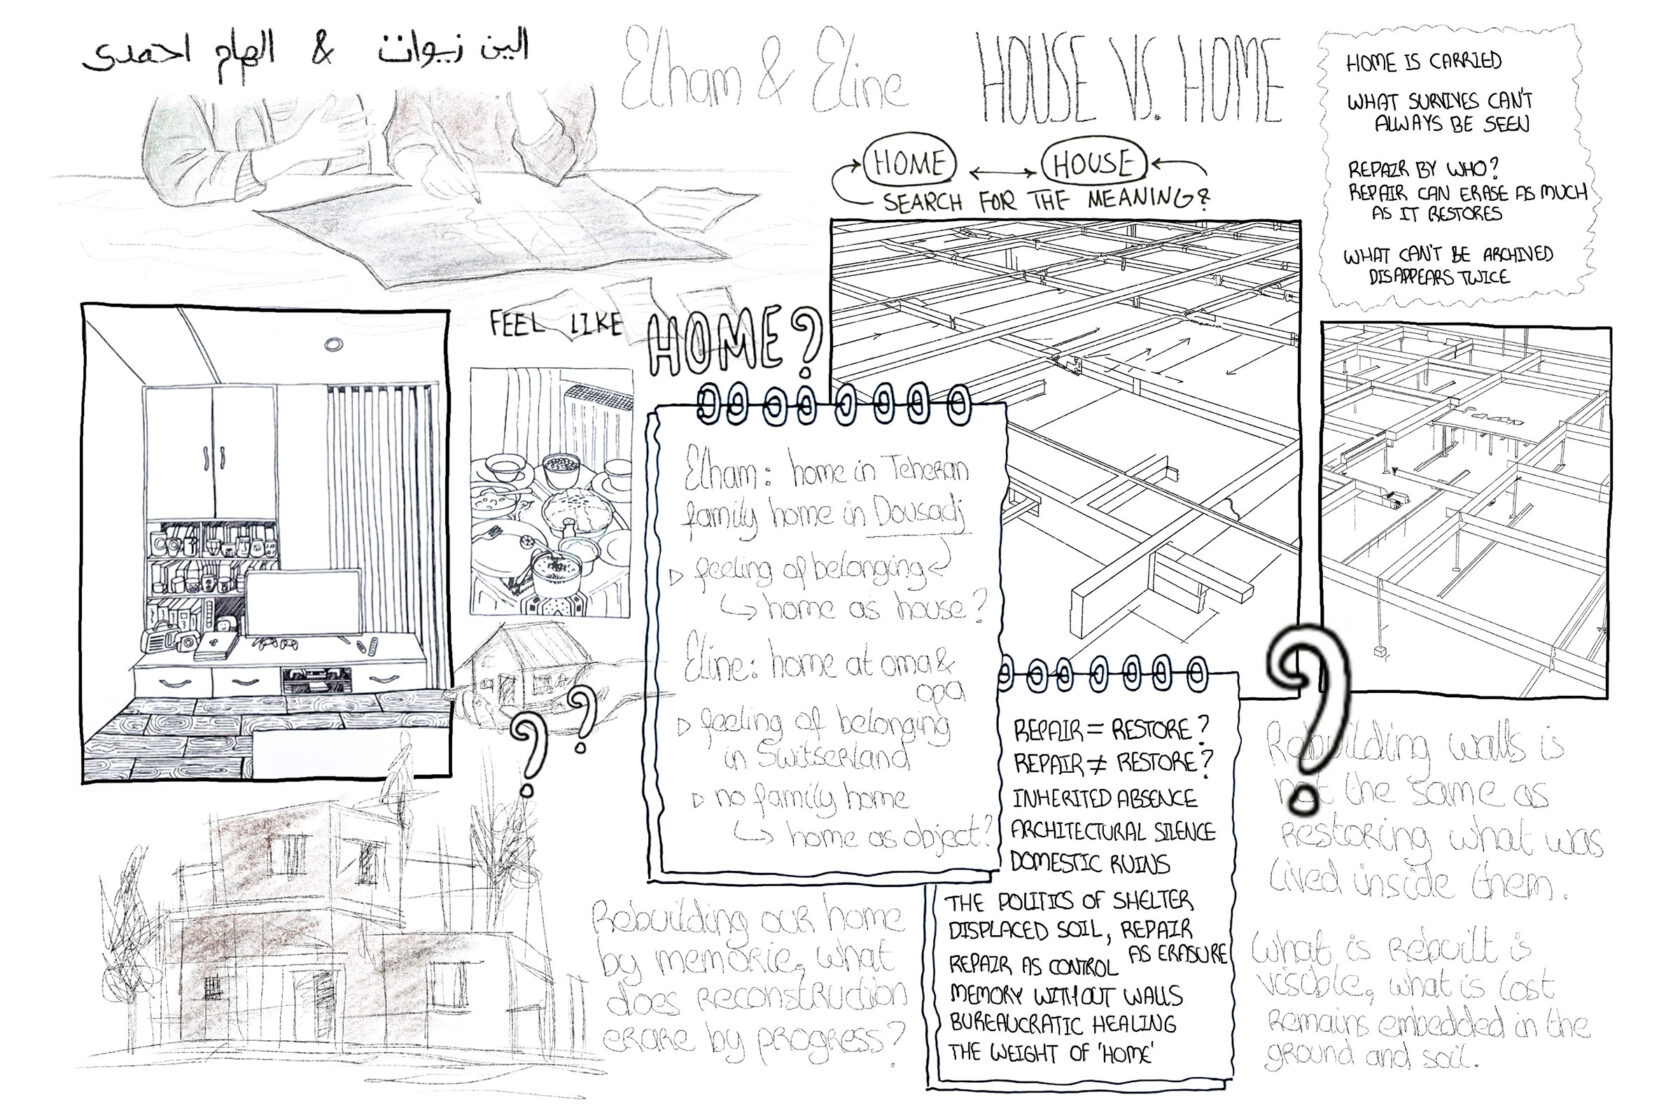 الین زیوات & الهام احمدی
Elham & Eline
HOUSE VS. HOME
HOME IS CARRIED
WHAT SURVIVES CAN'T
ALWAYS BE SEEN
REPAIR BY WHO?
REPAIR CAN ERASE AS MUCH
AS IT RESTORES
WHAT CAN'T BE ARCHIVED
DISAPPEARS TWICE
HOME HOUSE
SEARCH FOR THE MEANING?
FEEL LIKE HOME?
Elham: home in Teheran
family home in Dousadj
feeling of belonging
home as house?
Eline: home at oma &
opa
feeling of belonging
in Switserland
no family home
home as object?
REPAIR = RESTORE?
REPAIR ≠ RESTORE?
INHERITED ABSENCE
ARCHITECTURAL SILENCE
DOMESTIC RUINS
THE POLITICS OF SHELTER
DISPLACED SOIL, REPAIR
AS ERASURE
REPAIR AS CONTROL
MEMORY WITHOUT WALLS
BUREAUCRATIC HEALING
THE WEIGHT OF 'HOME'
Rebuilding our home
by memorie, what
does reconstruction
erare by progress?
Rebuilding walls is
not the same as
restoring what was
lived inside them.
What is rebuilt is
visible, what is lost
remains embedded in the
ground and soil.